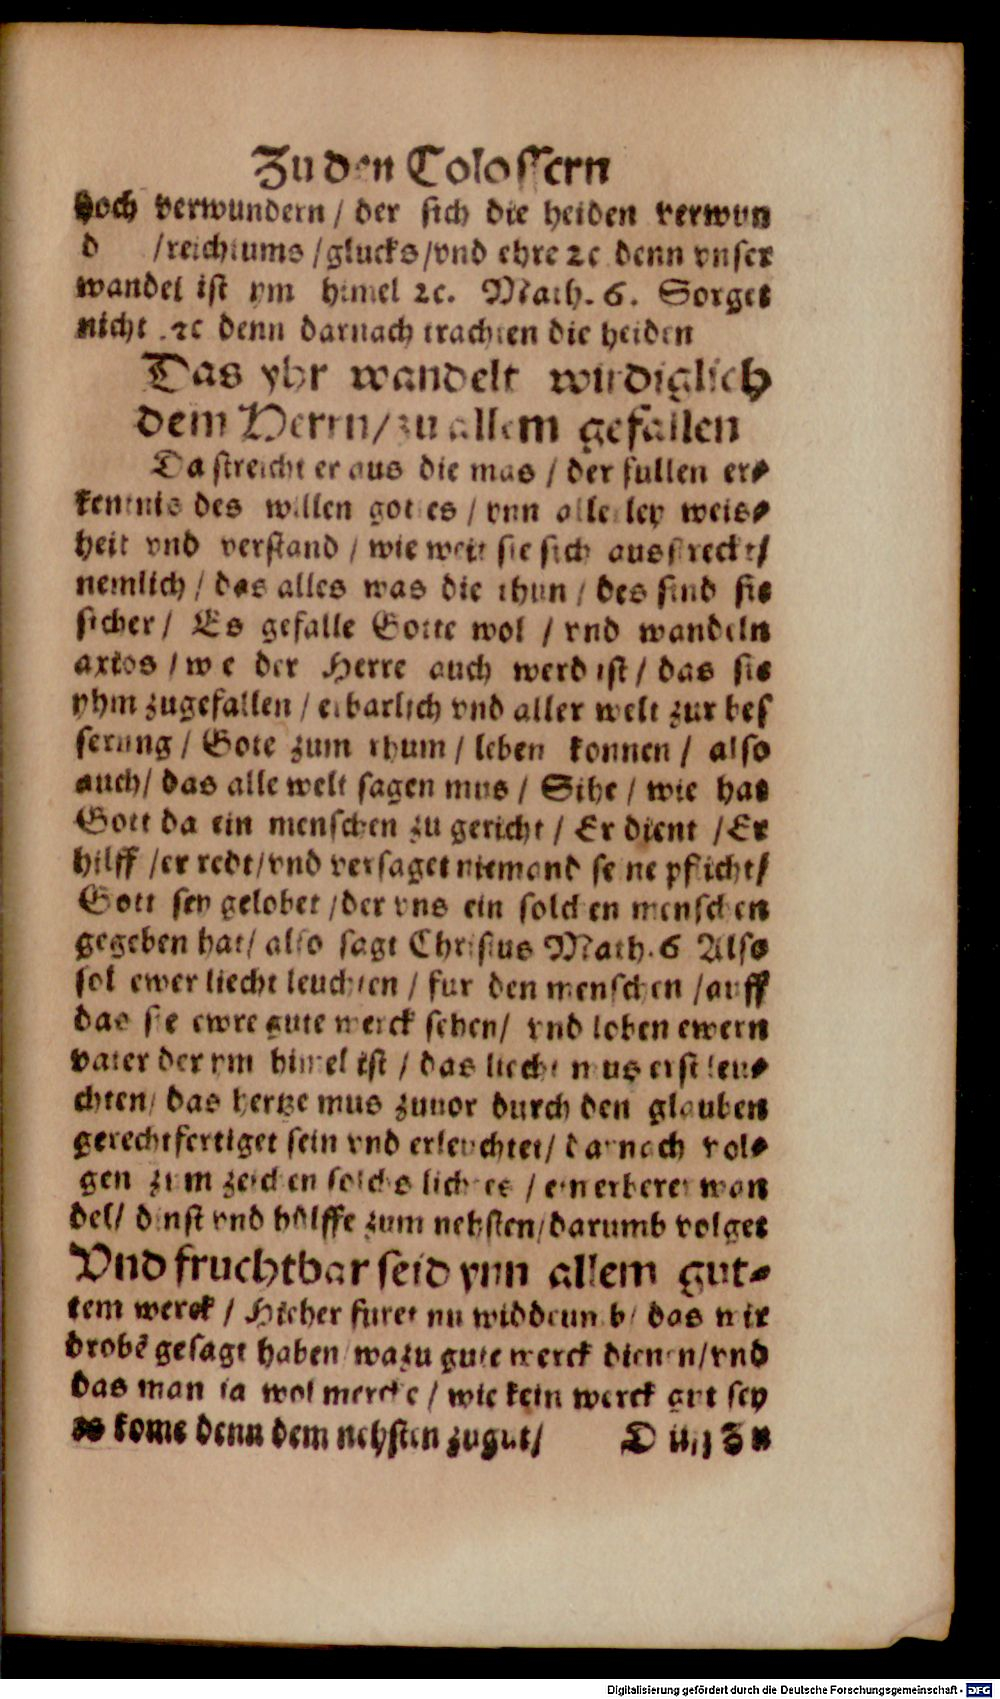 Zu den Colossern
hoch verwundern / der sich die heiden verwun
d /reichtums /glucks/vnd ehre ꝛc denn vnser
wandel ist ym himel ꝛc. Math. 6. Sorget
nicht .ꝛc denn darnach trachten die heiden
Das yhr wandelt wirdiglich
dem Herrn/zu allem gefallen
Da streicht er aus die mas / der fullen er⸗
kentnis des willen gottes / ynn allerley weis⸗
heit vnd verstand / wie weit sie sich ausstreckt/
nemlich / das alles was die thun / des sind sie
sicher / Es gefalle Gotte wol / vnd wandeln
axios / wie der Herre auch werd ist / das sie
yhm zugefallen / erbarlich vnd aller welt zur bes
serung / Gote zum rhum / leben konnen / also
auch/ das alle welt sagen mus / Sihe / wie hat
Gott da ein menschen zu gericht / Er dient /Er
hilff /er redt/vnd versaget niemand seine pflicht/
Gott sey gelobet /der vns ein solchen menschen
gegeben hat/ also sagt Christus Math. 6 Also
sol ewer liecht leuchten / fur den menschen /auff
das sie ewre gute werck sehen/ vnd loben ewern
vater der ym himel ist / das liecht mus erst leu⸗
chten/ das hertze mus zuuor durch den glauben
gerechtfertiget sein vnd erleuchtet/ darnach vol⸗
gen zum zeichen solchs lichtes / ein erberer wan
del/ dinst vnd hülffe zum nehsten/darumb volget
Vnd fruchtbar seid ynn allem gut⸗
tem werck / Hieher furet nu widdrumb/ das wir
drobē gesagt haben/wazu gute werck dienen/vnd
das man ia wol mercke / wie kein werck gut sey
es kome denn dem nehsten zugut/ D iiij Zu
Digitalisierung gefördert durch die Deutsche Forschungsgemeinschaft - DFG